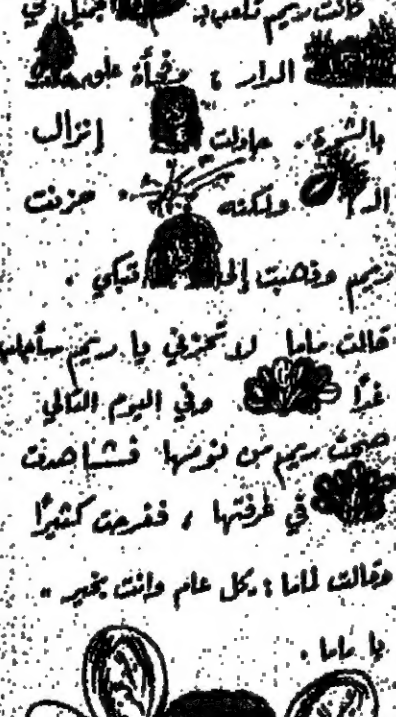 كانت ريم تلعب بـ الجميل في
الدار ، وفجأة علق
بالشجرة . حاولت إنزال
الـ ولكنه حزنت
ريم وذهبت إلى تبكي .
قالت ماما لا تحزني يا ريم سأجلب
غدًا وفي اليوم التالي
صحت ريم من نومها فشاهدت
في غرفتها ، ففرحت كثيرًا
وقالت لماما : كل عام وانت بخير "
يا ماما .